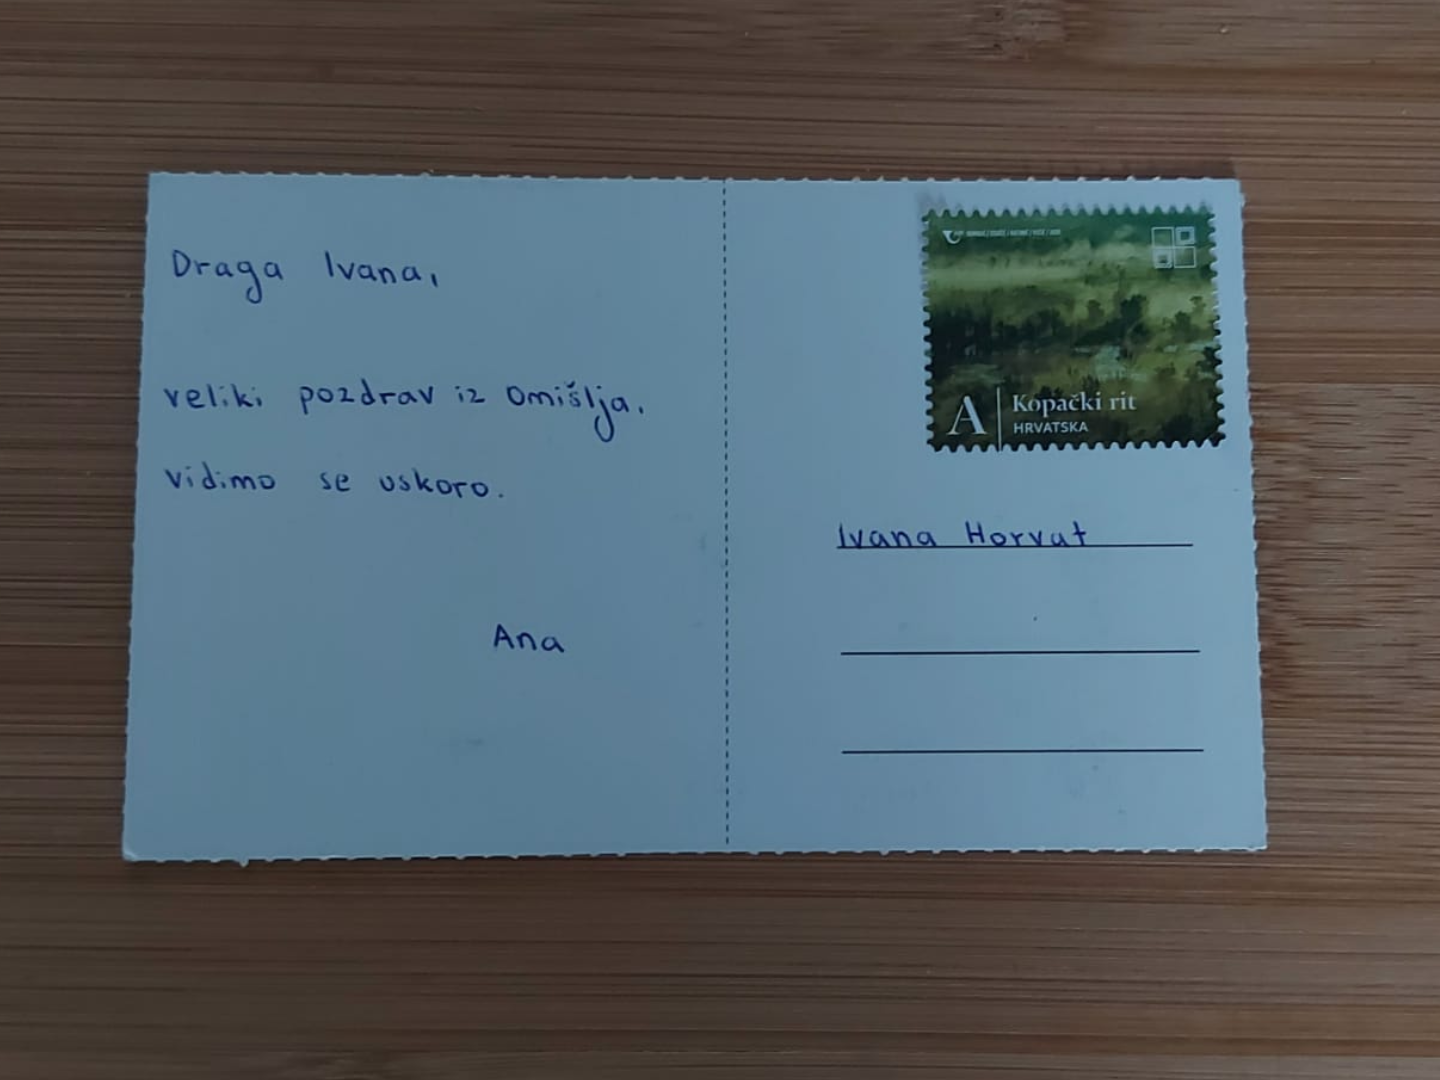 Draga Ivana,
veliki pozdrav iz Omišlja.
vidimo se uskoro.
Ana
A
Kopački rit
HRVATSKA
Ivana Horvat